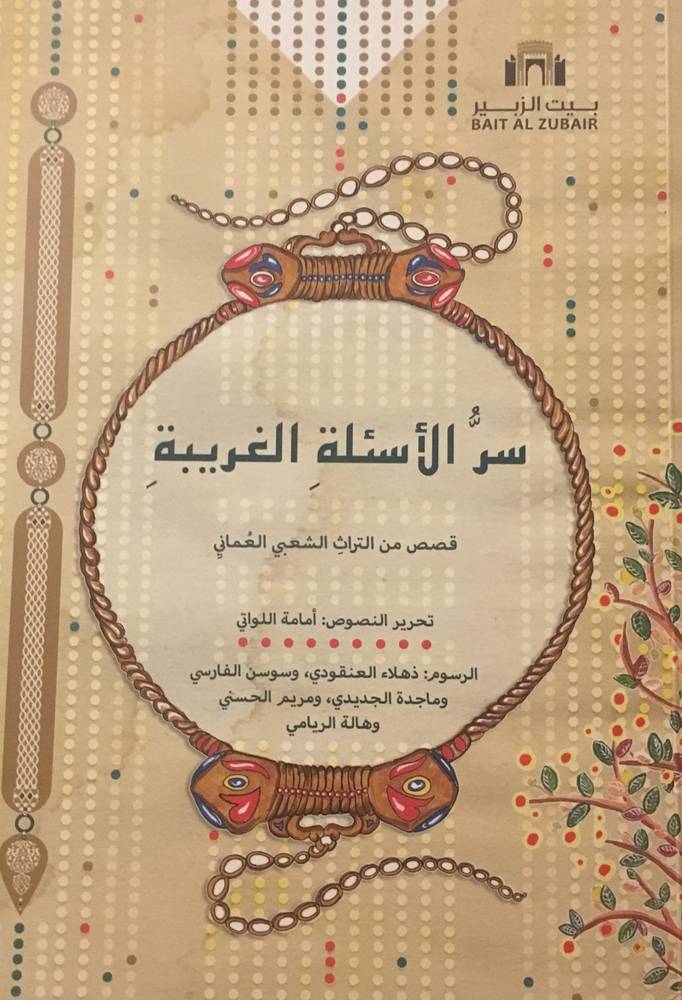 بيت الزبير
BAIT AL ZUBAIR
سرُّ الأسئلةِ الغريبةِ
قصص من التراثِ الشعبي العُماني
تحرير النصوص: أمامة اللواتي
الرسوم: ذهلاء العنقودي، وسوسن الفارسي
وماجدة الجديدي، ومريم الحسني
وهالة الريامي